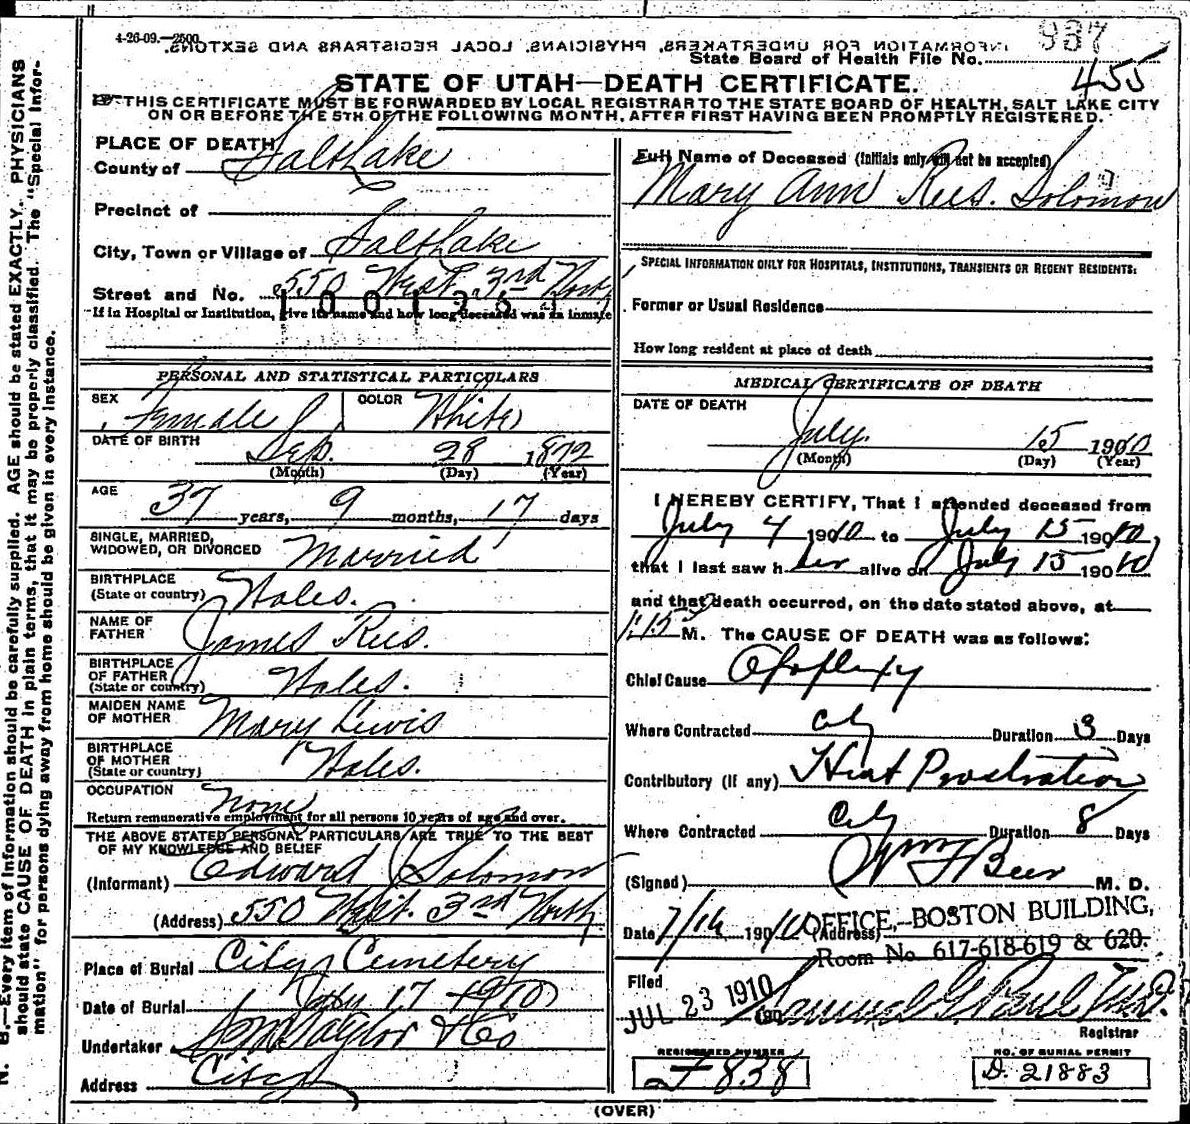 4-26-09.—2500.
INFORMATION FOR UNDERTAKERS, PHYSICIANS, LOCAL REGISTRARS AND SEXTONS.
937
State Board of Health File No.
455
STATE OF UTAH—DEATH CERTIFICATE.
THIS CERTIFICATE MUST BE FORWARDED BY LOCAL REGISTRAR TO THE STATE BOARD OF HEALTH, SALT LAKE CITY
ON OR BEFORE THE 5TH OF THE FOLLOWING MONTH, AFTER FIRST HAVING BEEN PROMPTLY REGISTERED.
N. B.—Every item of information should be carefully supplied. AGE should be stated EXACTLY. PHYSICIANS
should state CAUSE OF DEATH in plain terms, that it may be properly classified. The "Special Infor-
mation" for persons dying away from home should be given in every instance.
PLACE OF DEATH
County of Salt Lake
Precinct of
City, Town or Village of Salt Lake
Street and No. 550 West 3rd North
If in Hospital or Institution, give its name and how long deceased was an inmate
PERSONAL AND STATISTICAL PARTICULARS
SEX Female COLOR White
DATE OF BIRTH Sep. 28 1872
(Month) (Day) (Year)
AGE 37 years, 9 months, 17 days
SINGLE, MARRIED,
WIDOWED, OR DIVORCED Married
BIRTHPLACE
(State or country) Wales.
NAME OF
FATHER James Rees.
BIRTHPLACE
OF FATHER
(State or country) Wales.
MAIDEN NAME
OF MOTHER Mary Lewis
BIRTHPLACE
OF MOTHER
(State or country) Wales.
OCCUPATION None
Return remunerative employment for all persons 10 years of age and over.
THE ABOVE STATED PERSONAL PARTICULARS ARE TRUE TO THE BEST
OF MY KNOWLEDGE AND BELIEF
(Informant) Edward Solomon
(Address) 550 West. 3rd North
Place of Burial City Cemetery
Date of Burial July 17 1910
Undertaker S M Taylor & Co
Address City
Full Name of Deceased (Initials only will not be accepted)
Mary Ann Rees. Solomon
SPECIAL INFORMATION ONLY FOR HOSPITALS, INSTITUTIONS, TRANSIENTS OR RECENT RESIDENTS:
Former or Usual Residence
How long resident at place of death
MEDICAL CERTIFICATE OF DEATH
DATE OF DEATH
July. 15 1910
(Month) (Day) (Year)
I HEREBY CERTIFY, That I attended deceased from
July 4 1910 to July 15 1910,
that I last saw her alive on July 15 1910
and that death occurred, on the date stated above, at
1:15 M. The CAUSE OF DEATH was as follows:
Chief Cause Apoplexy
Where Contracted City Duration 3 Days
Contributory (if any) Heat Prostration
Where Contracted City Duration 8 Days
(Signed) Wm F Beer M. D.
Date 7/16 1910 (Address) OFFICE, BOSTON BUILDING,
Room No. 617-618-619 & 620.
Filed
JUL 23 1910 190 Samuel G. Paul M.D.
Registrar
REGISTERED NUMBER
J 838
NO. OF BURIAL PERMIT
D. 21883
(OVER)